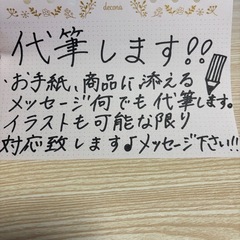 decona
代筆します!!
・お手紙、商品に添える
メッセージ何でも代筆します。
イラストも可能な限り
対応致します♪メッセージ下さい!!